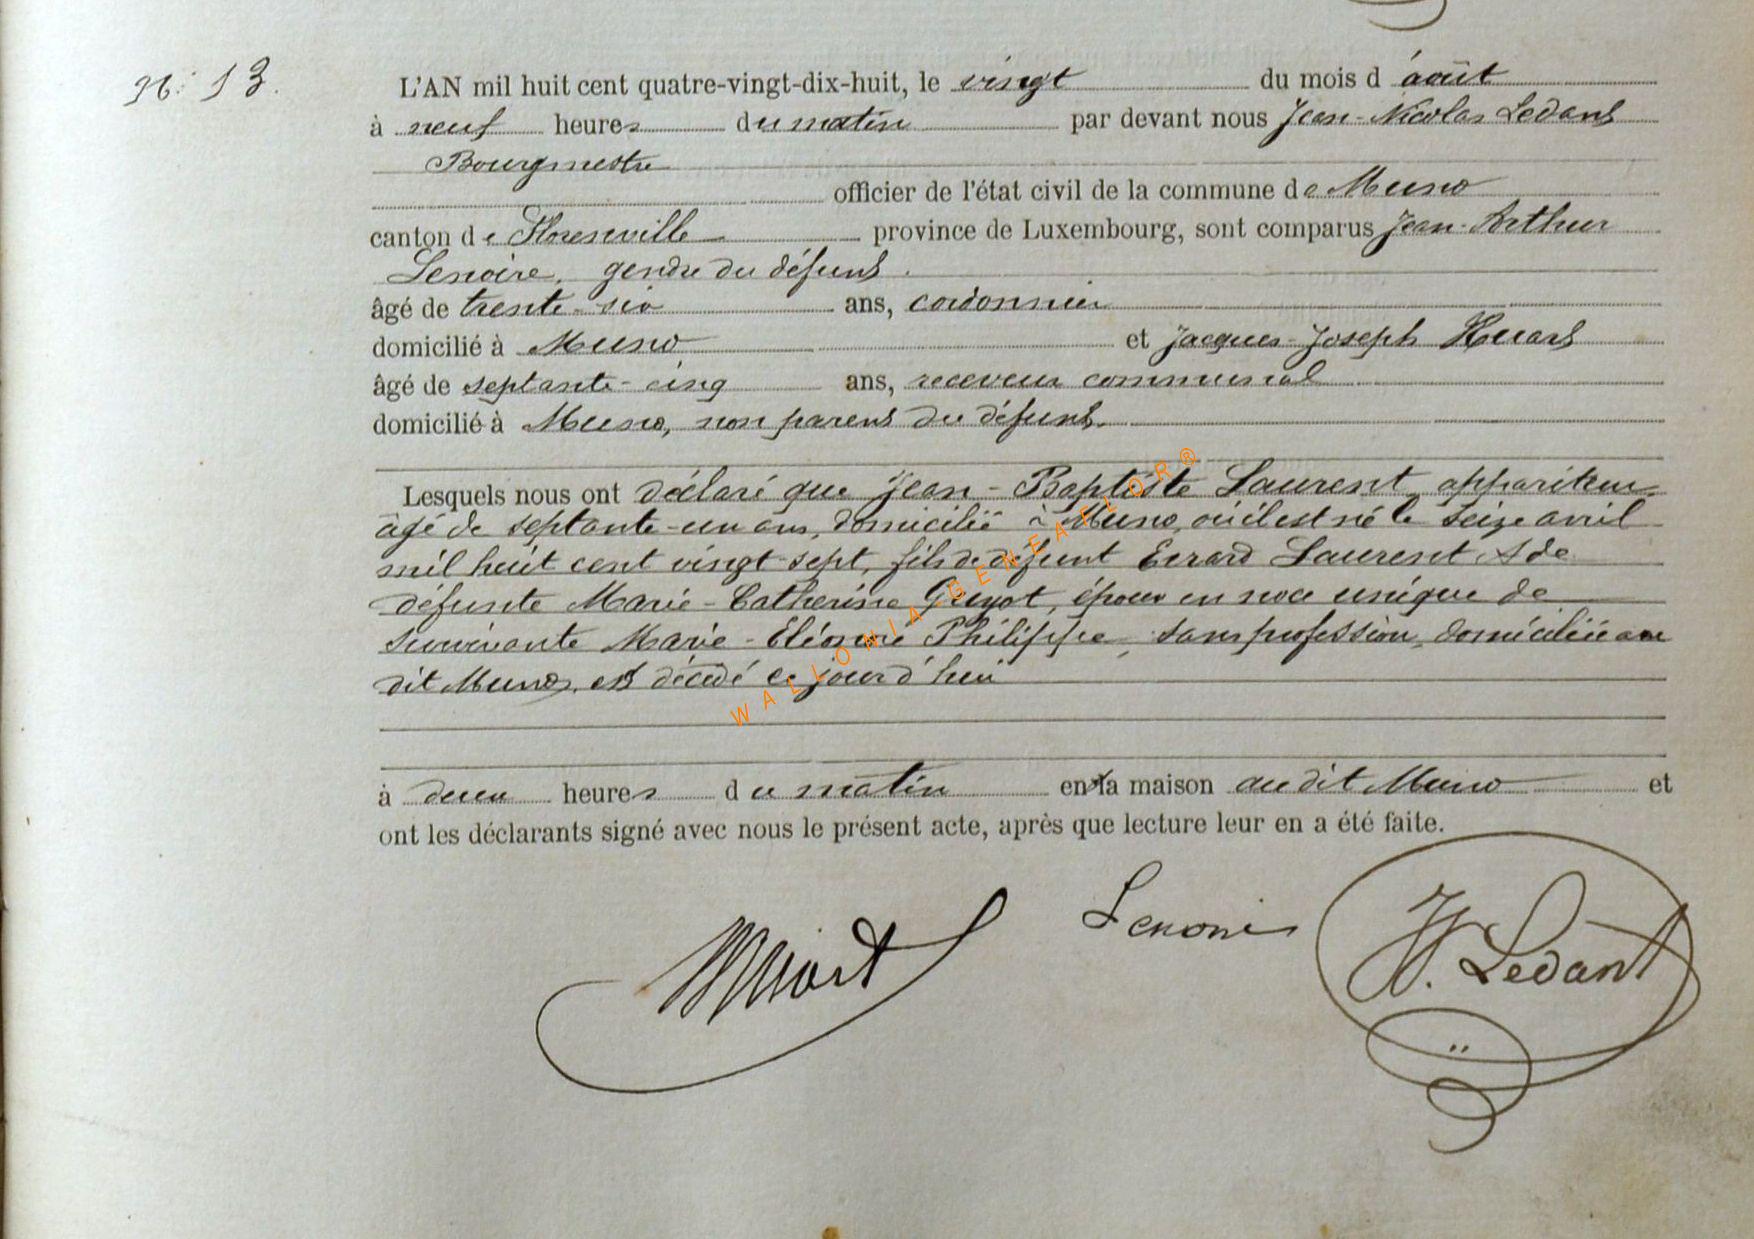 N: 13.
L'AN mil huit cent quatre-vingt-dix-huit, le vingt du mois d'août
à neuf heures du matin par devant nous Jean-Nicolas Ledant
Bourgmestre
officier de l'état civil de la commune de Muno
canton de Florenville province de Luxembourg, sont comparus Jean-Arthur
Lenoire, gendre du défunt.
âgé de trente-six ans, cordonnier
domicilié à Muno et Jacques-Joseph Huart
âgé de septante-cinq ans, receveur communal
domicilié à Muno, non parent du défunt.
Lesquels nous ont déclaré que Jean-Baptiste Laurent, appariteur,
âgé de septante-un ans, domicilié à Muno, où il est né le seize avril
mil huit cent vingt-sept, fils de défunt Evrard Laurent & de
défunte Marie-Catherine Guyot, époux en noce unique de
survivante Marie-Eléonore Philippe, sans profession, domiciliée au
dit Muno, est décédé ce jourd'hui
à deux heures du matin en sa maison audit Muno et
ont les déclarants signé avec nous le présent acte, après que lecture leur en a été faite.
Huart Lenoire JN. Ledant
WALLONIA GENEAFLOR®